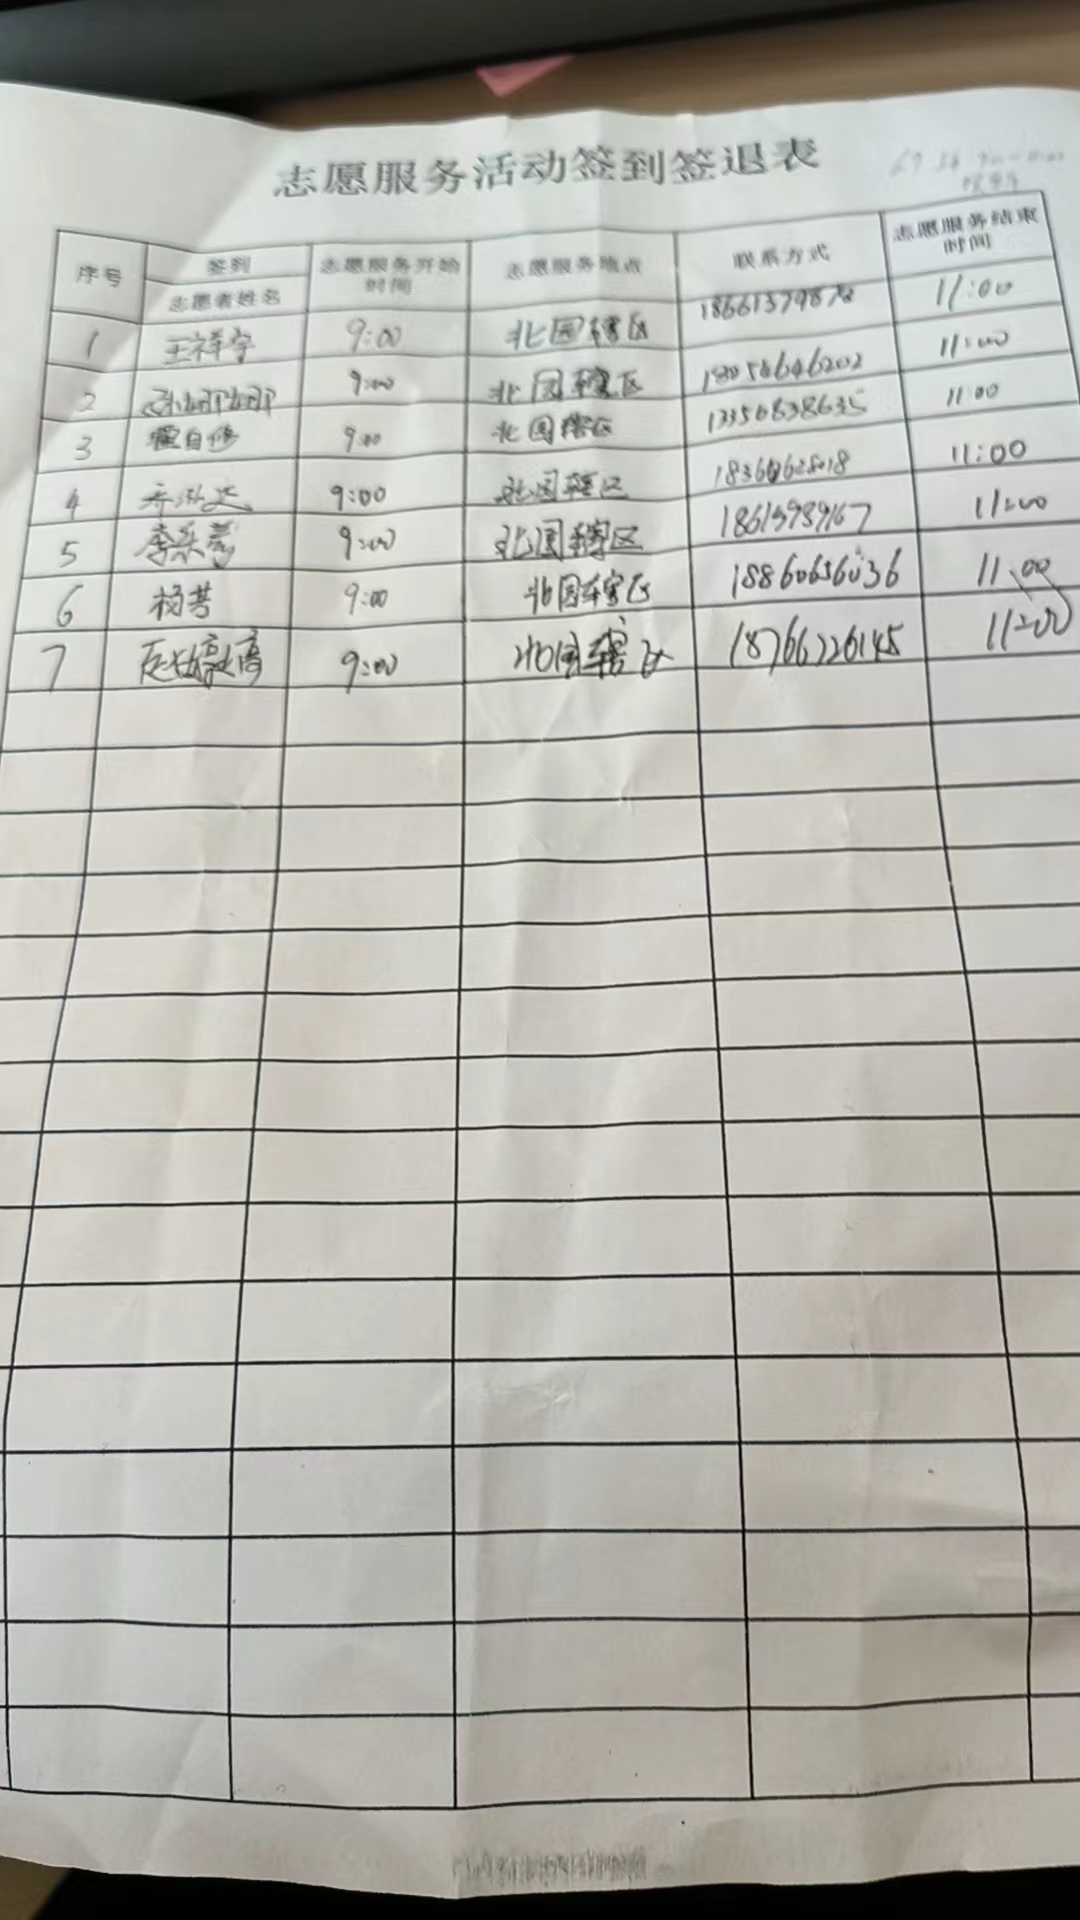 志愿服务活动签到签退表
序号 签到 志愿者姓名 志愿服务开始时间 志愿服务地点 联系方式 志愿服务结束时间
1 王祥宇 9:00 北园辖区 11:00
2 孙娜娜 9:00 北园辖区 18054646202 11:00
3 翟自修 9:00 北园辖区 13356838635 11:00
4 9:00 北园辖区 11:00
5 9:00 北园辖区 18615939167 11:00
6 杨芳 9:00 北园辖区 18860656036 11:00
7 9:00 北园辖区 18766226145 11:00